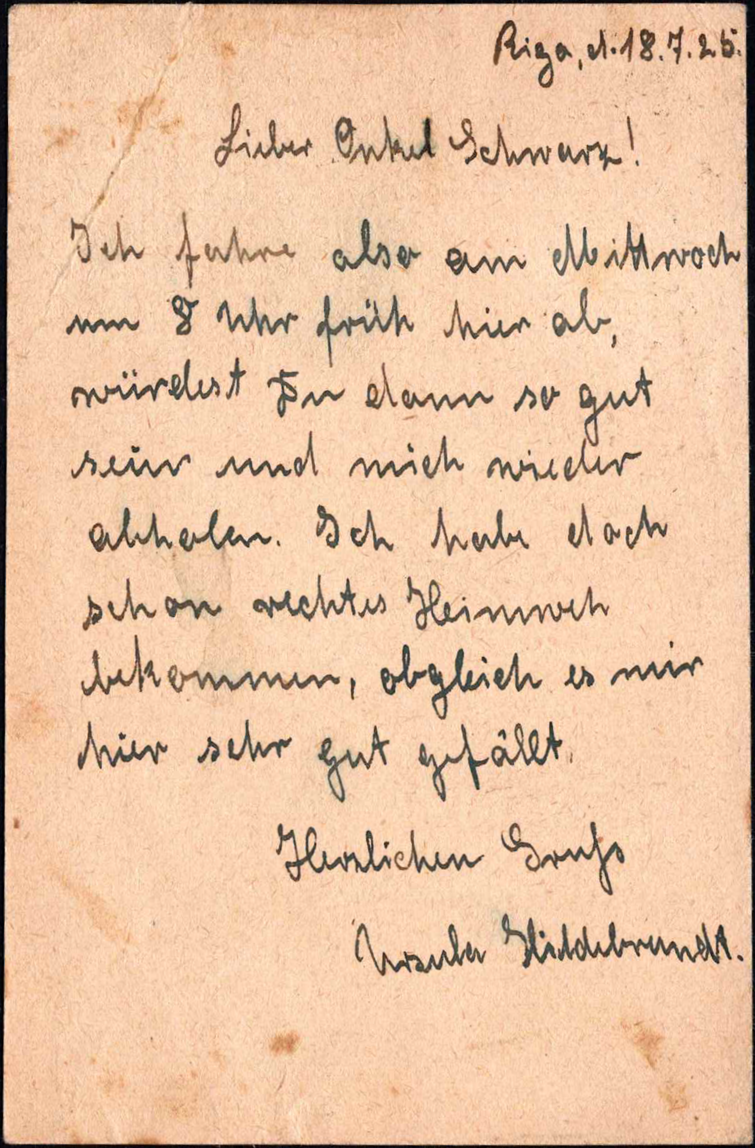 Riga, d. 18.7.25.
Lieber Onkel Schwarz!
Ich fahre also am Mittwoch
um 8 Uhr früh hier ab,
würdest Du dann so gut
sein und mich wieder
abholen. Ich habe doch
schon rechtes Heimweh
bekommen, obgleich es mir
hier sehr gut gefällt.
Herzlichen Gruß
Ursula Hildebrandt.